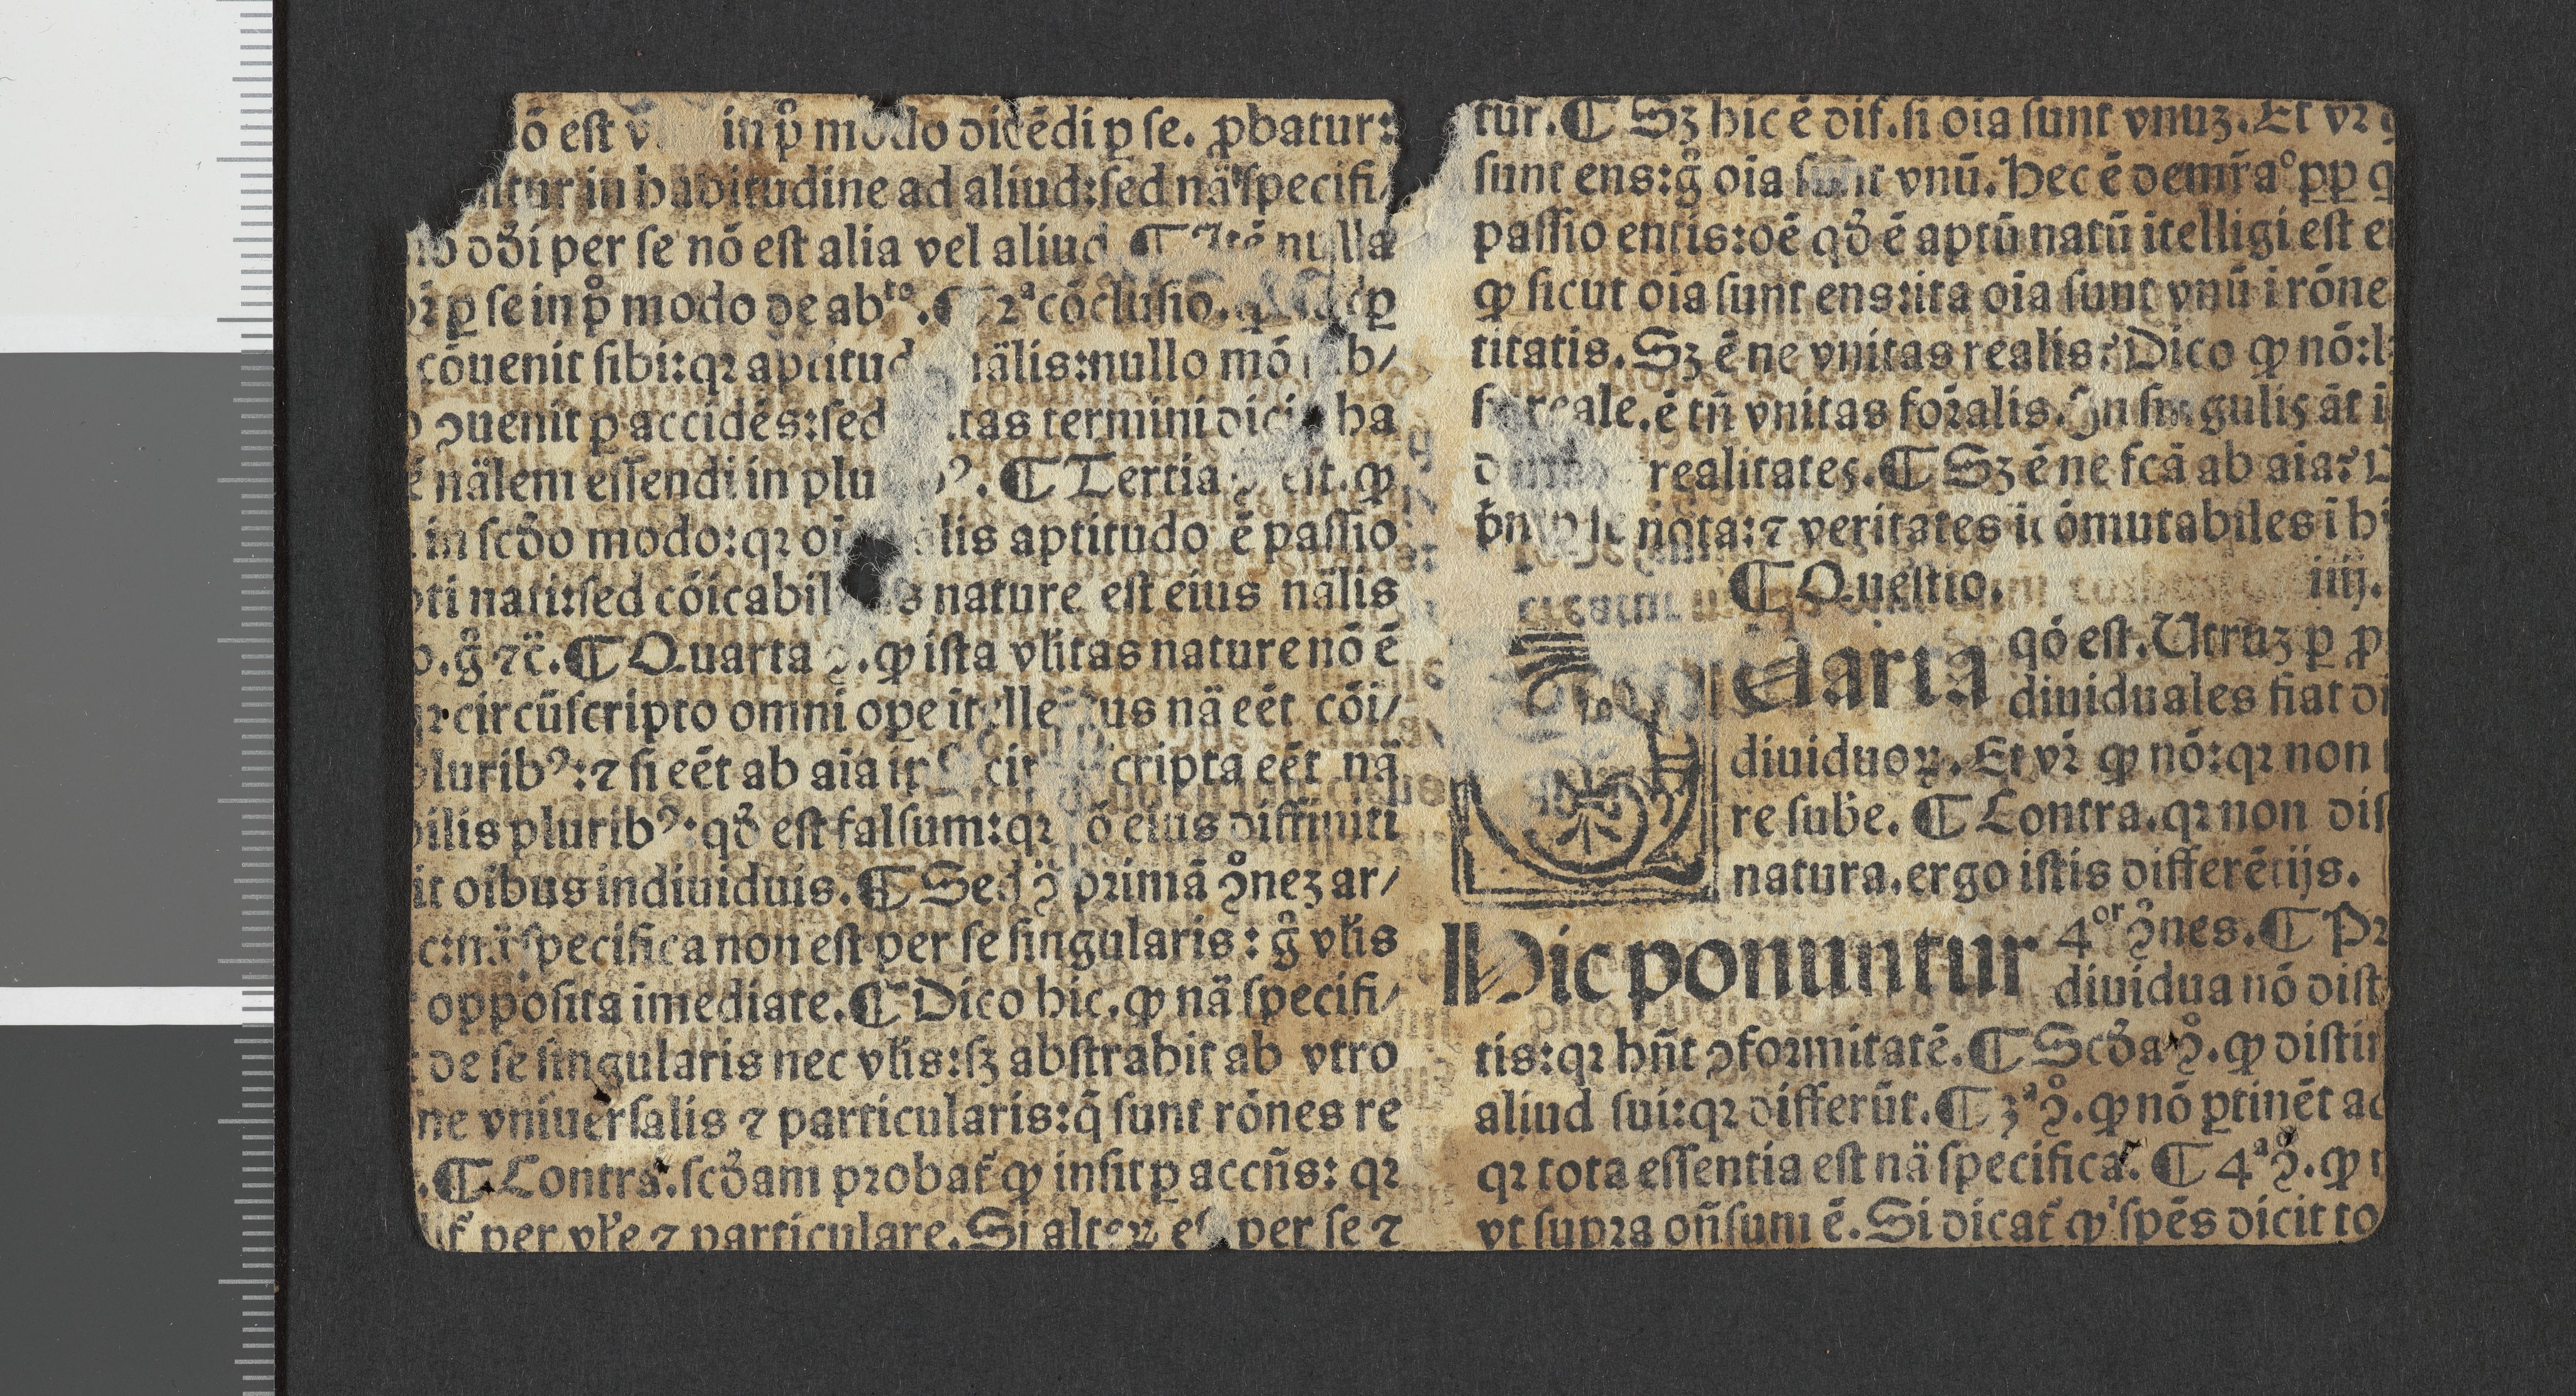 ō est in pͦ modo dicēdi ꝑ se. ꝓbatur:
ntur in habitudine ad aliud:sed nā specifi/
dōi per se nō est alia vel aliud ¶ Itē nulla
ꝑ se in pͦ modo de abᵗᵒ.¶ 2ᵃ cōclusio. ꝙ
cōuenit sibi:qꝛ aptitud nālis:nullo mō ab/
ꝯuenit ꝑ accidēs:sed tas termini dici ha
nālem essendi in plu ꝰ.¶ Tertia ꝯ est.ꝙ
in scd̄o modo:qꝛ oi lis aptitudo ē passio
ti nati:sed cōicabil s nature est eius nālis
g̊ ⁊c̄.¶ Quarta ꝯ.ꝙ ista vl̄itas nature nō ē
circūscripto omni oꝑe itellectus nā eēt cōi/
luribꝰ:⁊ si eēt ab aia cripta eēt nā
bilis pluribꝰ:qd̄ est falsum:qꝛ ō eius diffiniti
it oibus indiuiduis.¶ Sed ꝯ primā ꝯ̊nez ar/
c:nā specifica non est per se singularis: g̊ vl̄is
opposita īmediate.¶ Dico hic.ꝙ nā specifi/
de se singularis nec vl̄is:sꝫ abstrahit ab vtro
ne vniuersalis ⁊ particularis:q̄ sunt rōnes re
.¶ Contra.scd̄am probat̄ ꝙ insit ꝑ accn̄s: qꝛ
per vl̄e ⁊ particulare.Si alteꝝ per se ⁊
tur.¶ Sꝫ hic ē dif.si oīa sunt vnuꝫ.Et vꝛ̄
sunt ens:g̊ oīa sunt vnū.Hec ē demr̄aᵒ ꝑp
passio entis:oē qd̄ ē aptū natū ītelligi est
ꝙ sicut oīa sunt ens:ita oīa sunt vnū ī rōne
titatis.Sꝫ ē ne vnitas realis?Dico ꝙ nō:
reale.ē tn̄ vnitas foralis.In singulis āt
realitates.¶ Sꝫ ē ne fcā ab aīa?
nota:⁊ veritates īcōmutabiles ī
¶ Questio. iiij.
Uarta qō est.Utruꝫ ꝑ ꝓ
diuiduales fiat
diuiduoꝝ.Et vꝛ̄ ꝙ nō:qꝛ non
re sube.¶ Contra.qꝛ non dis
natura.ergo istis differētijs.
Hic ponuntur 4ᵒʳ ꝯ̊nes.¶ Pꝛ
diuidua nō dist
tis:qꝛ hn̄t ꝯformitatē.¶ Scd̄a ꝯ̊.ꝙ distin
aliud sui:qꝛ differūt.¶ 3ᵃ ꝯ̊.ꝙ nō ꝑtinēt ad
qꝛ tota essentia est nā specifica.¶ 4ᵃ ꝯ̊.ꝙ
vt supra on̄sum ē.Si dicat̄ ꝙ spēs dicit to